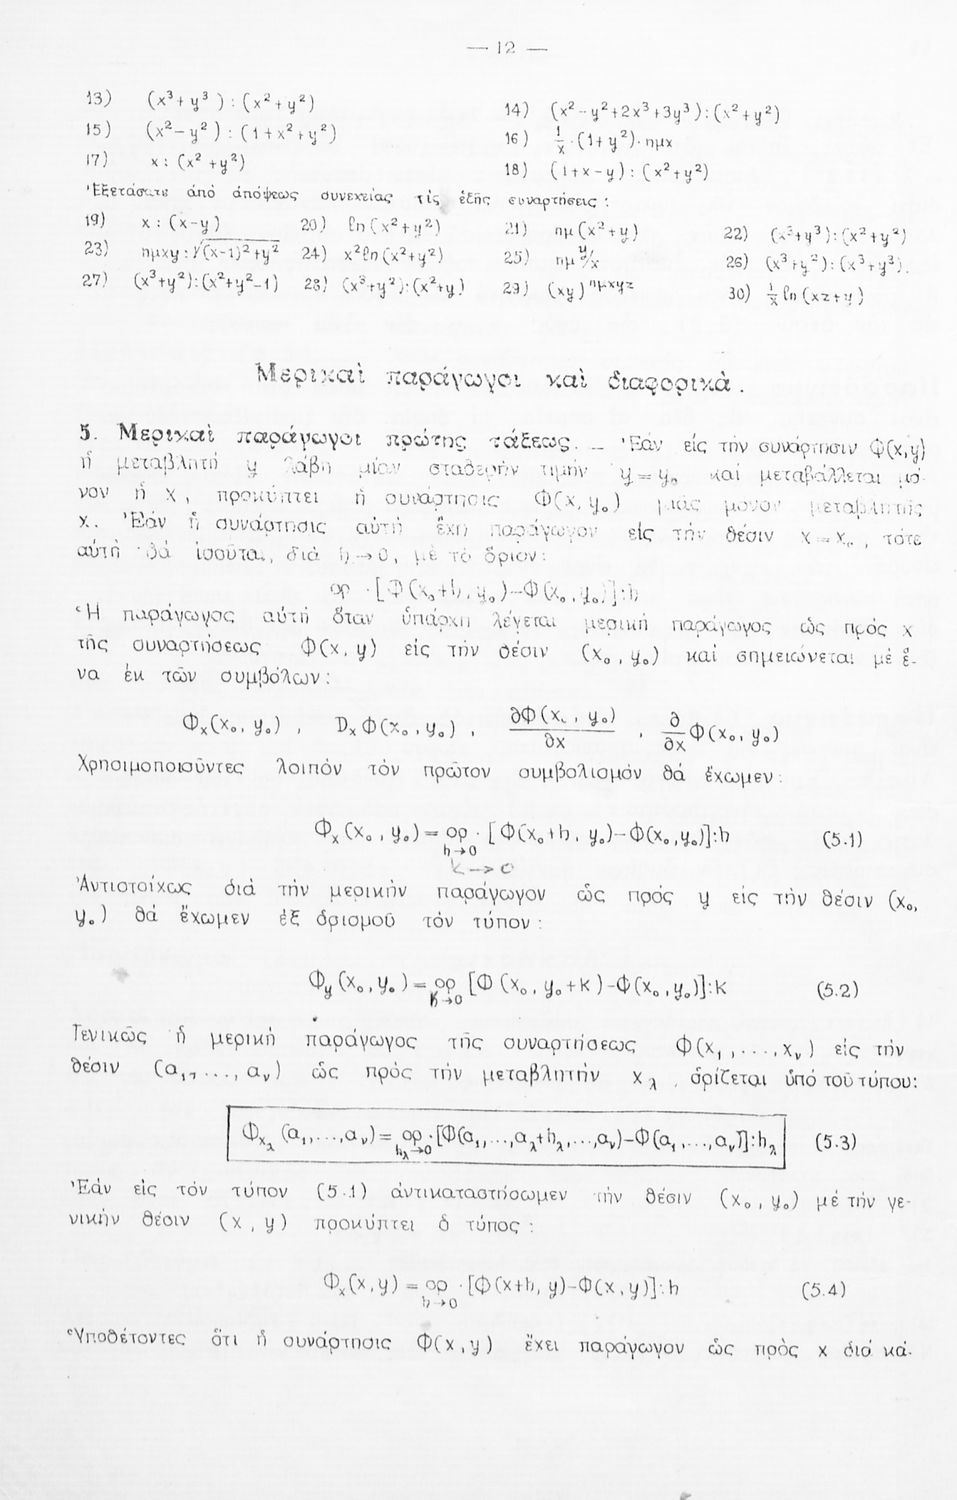 — 12 —
13) (x³+y³) : (x²+y²)
14) (x²-y²+2x³+3y³):(x²+y²)
15) (x²-y²) : (1+x²+y²)
16) 1/x·(1+y²)·ημx
17) x : (x²+y²)
18) (1+x-y) : (x²+y²)
Ἐξετάσατε ἀπό ἀπόψεως συνεχείας τίς ἑξῆς συναρτήσεις :
19) x : (x-y) 20) ℓn(x²+y²) 21) ημ(x²+y) 22) (x³+y³):(x²+y²)
23) ημxy:√(x-1)²+y² 24) x²ℓn(x²+y²) 25) ημ y/x 26) (x³+y²):(x³+y³).
27) (x³+y²):(x²+y²-1) 28) (x³+y²):(x²+y) 29) (xy)^ημxyz 30) 1/x ℓn(xz+y)
Μερικαὶ παράγωγοι καὶ διαφορικά.
5. Μερικαὶ παράγωγοι πρώτης τάξεως. — Ἐάν εἰς τήν συνάρτησιν Φ(x,y)
ἡ μεταβλητή y λάβῃ μίαν σταθερήν τιμήν y=y₀ καί μεταβάλλεται μό-
νον ἡ x, προκύπτει ἡ συνάρτησις Φ(x,y₀) μιᾶς μόνον μεταβλητῆς
x. Ἐάν ἡ συνάρτησις αὐτή ἔχῃ παράγωγον εἰς τήν θέσιν x=x₀, τότε
αὐτή θά ἰσοῦται, διά h→0, μέ τό ὅριον:
ορ·[Φ(x₀+h,y₀)-Φ(x₀,y₀)]:h
Ἡ παράγωγος αὐτή ὅταν ὑπάρχῃ λέγεται μερική παράγωγος ὡς πρός x
τῆς συναρτήσεως Φ(x,y) εἰς τήν θέσιν (x₀,y₀) καί σημειώνεται μέ ἕ-
να ἐκ τῶν συμβόλων:
Φₓ(x₀,y₀), DₓΦ(x₀,y₀), ∂Φ(x₀,y₀)/∂x, ∂/∂x Φ(x₀,y₀)
Χρησιμοποιοῦντες λοιπόν τόν πρῶτον συμβολισμόν θά ἔχωμεν:
Φₓ(x₀,y₀)= ορ·[Φ(x₀+h,y₀)-Φ(x₀,y₀)]:h (5.1)
h→0
k-->0
Ἀντιστοίχως διά τήν μερικήν παράγωγον ὡς πρός y εἰς τήν θέσιν (x₀,
y₀) θά ἔχωμεν ἐξ ὁρισμοῦ τόν τύπον:
Φy(x₀,y₀)= ορ [Φ(x₀,y₀+K)-Φ(x₀,y₀)]:K (5.2)
K→0
Γενικῶς ἡ μερική παράγωγος τῆς συναρτήσεως Φ(x₁,...,xᵥ) εἰς τήν
θέσιν (α₁,...,αᵥ) ὡς πρός τήν μεταβλητήν xλ, ὁρίζεται ὑπό τοῦ τύπου:
Φxλ(α₁,...,αᵥ)= ορ·[Φ(α₁,...,αλ+hλ,...,αᵥ)-Φ(α₁,...,αᵥ)]:hλ (5.3)
hλ→0
Ἐάν εἰς τόν τύπον (5.1) ἀντικαταστήσωμεν τήν θέσιν (x₀,y₀) μέ τήν γε-
νικήν θέσιν (x,y) προκύπτει ὁ τύπος:
Φₓ(x,y)= ορ·[Φ(x+h,y)-Φ(x,y)]:h (5.4)
h→0
Ὑποθέτοντες ὅτι ἡ συνάρτησις Φ(x,y) ἔχει παράγωγον ὡς πρὸς x διά κά-